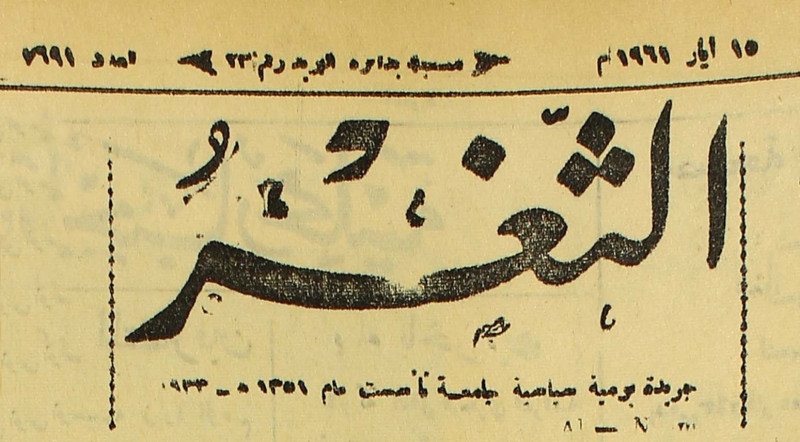 ١٥ أيار ١٩٦١م مسجلة بدائرة البريد رقم ٢٣ العدد ٧٦٩١
الثَّغْرُ
جريدة يومية سياسية جامعة تأسست عام ١٣٥١ هـ – ١٩٣٣